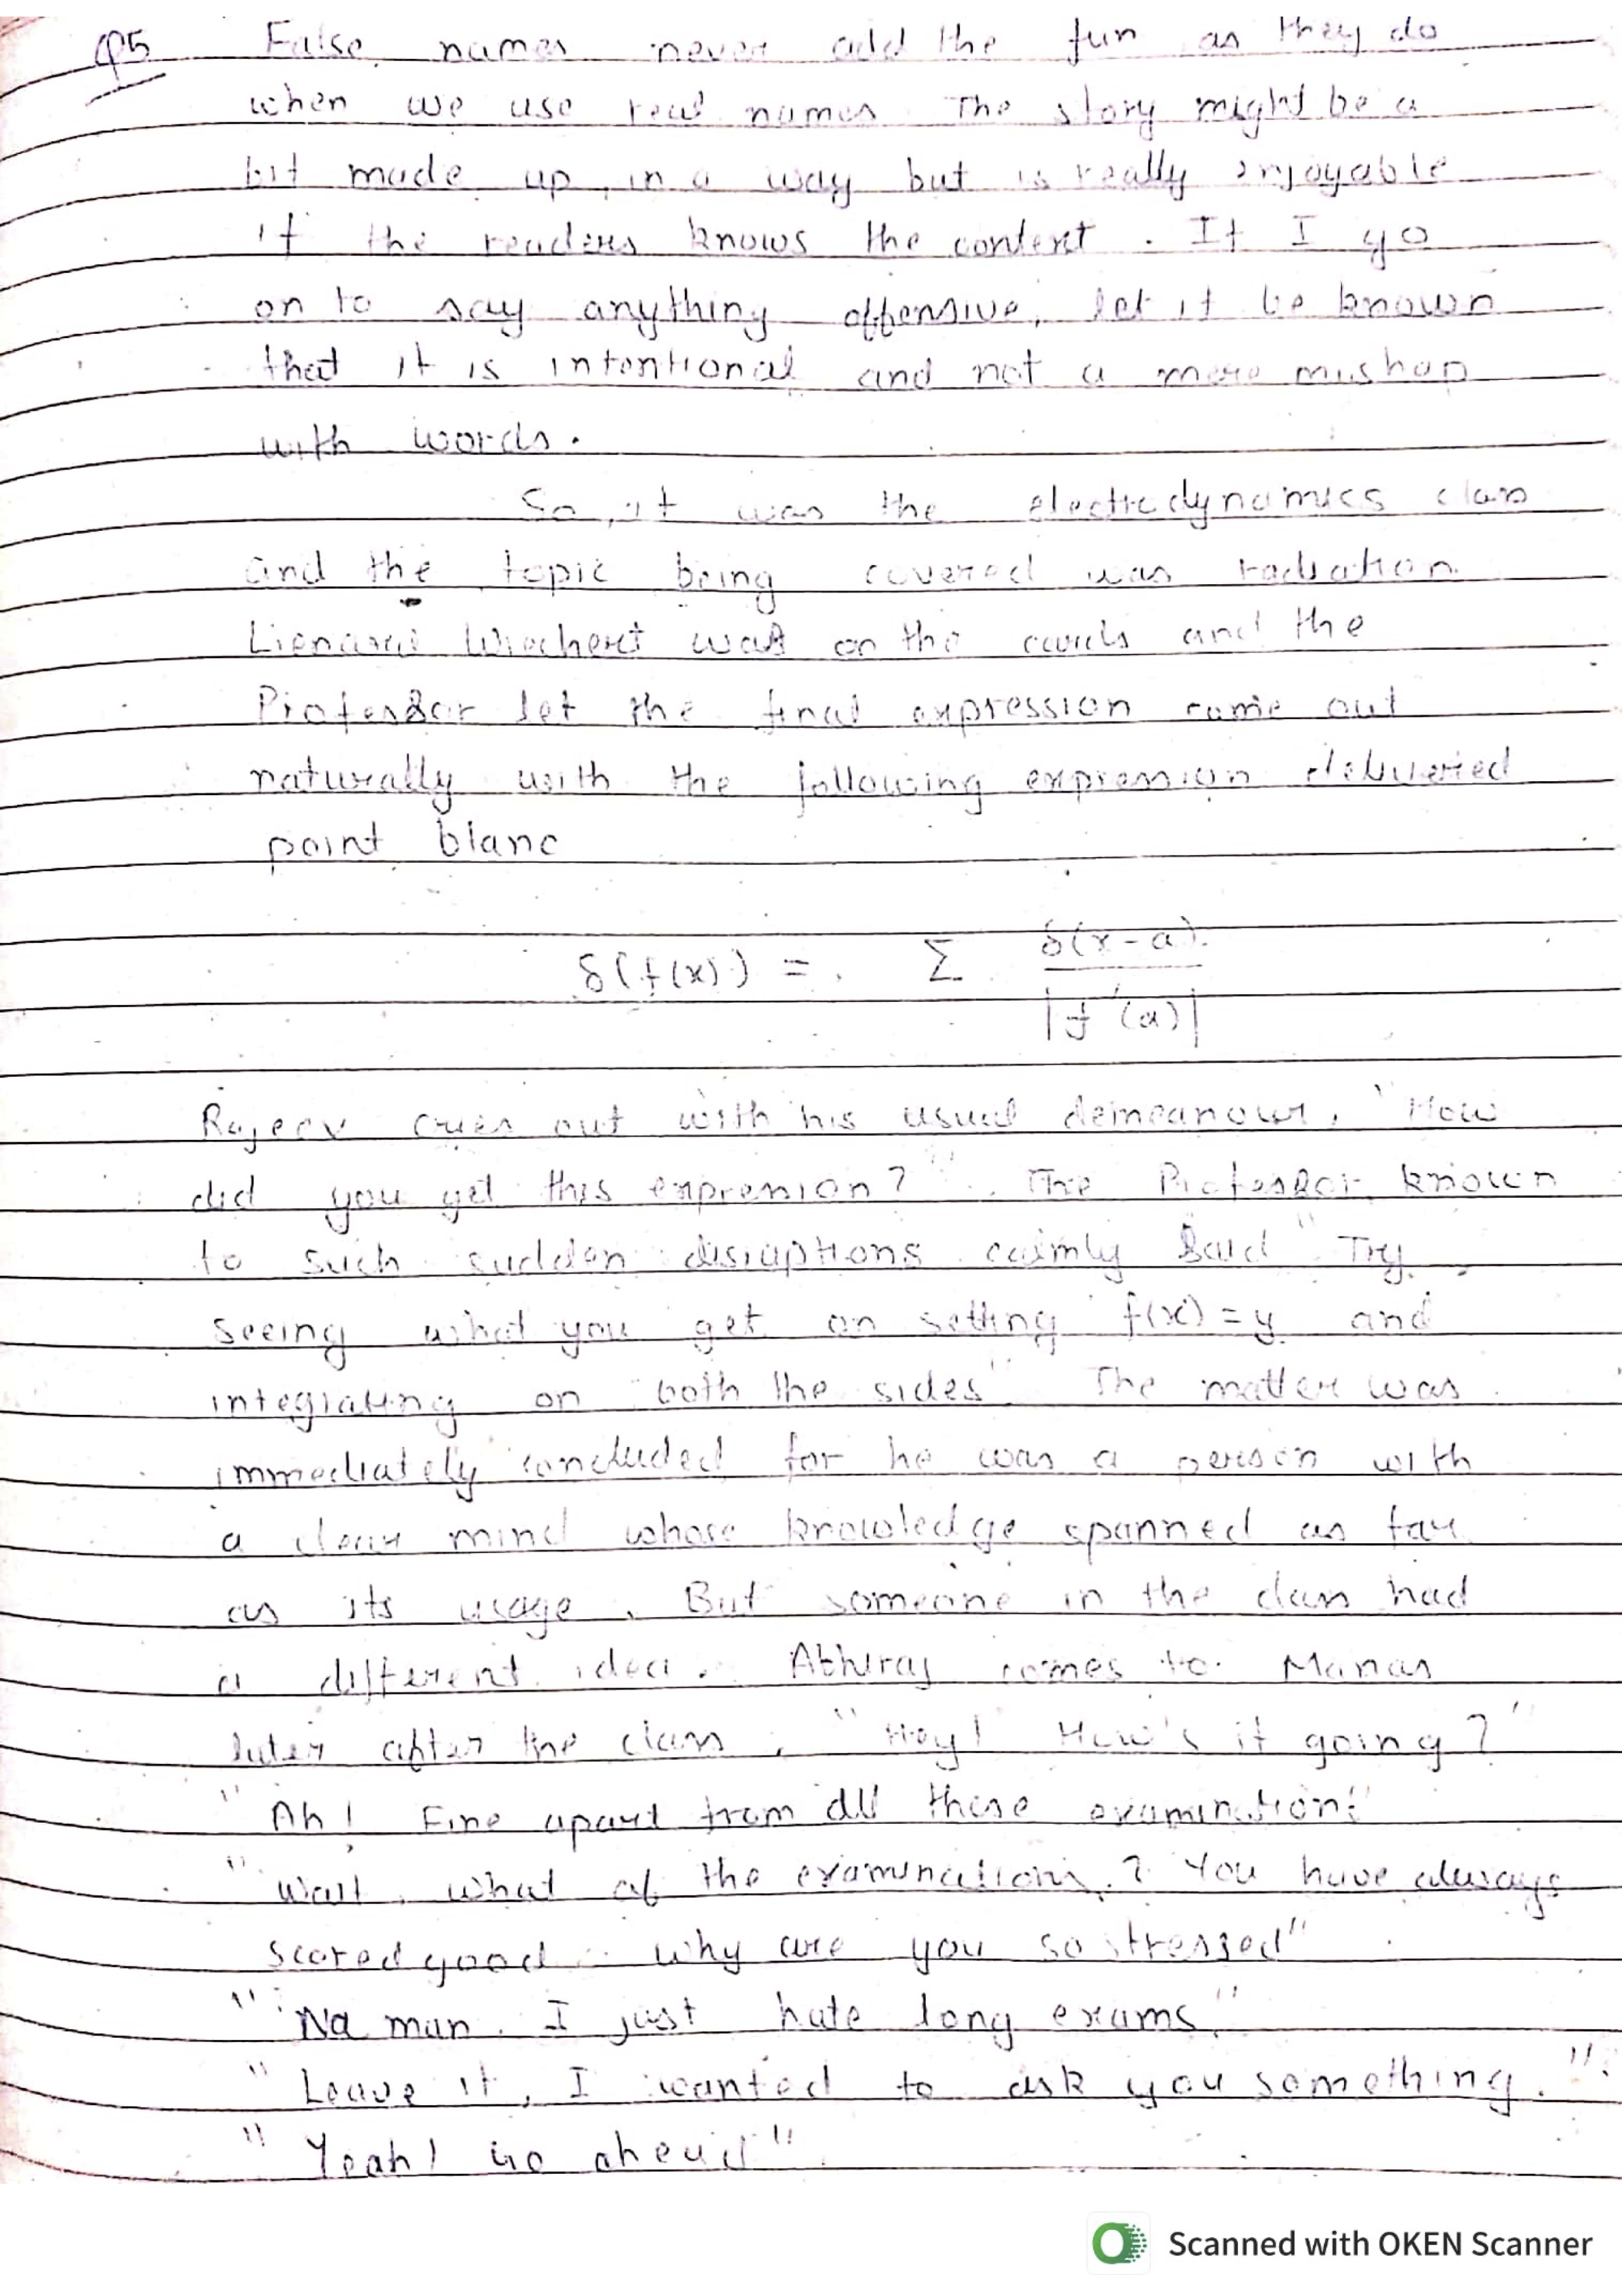 Q5 False names never add the fun as they do
when we use real names. The story might be a
bit made up, in a way but is really enjoyable
if the readers knows the context. If I go
on to say anything offensive, let it be known
that it is intentional and not a mere mishap
with words.
So, it was the electrodynamics class
and the topic being covered was radiation.
Lienard Wiechert was on the cards and the
Professor let the final expression come out
naturally with the following expression delivered
point blanc
δ(f(x)) = Σ δ(x-a) / |f'(a)|
Rajeev cries out with his usual demeanour, "How
did you get this expression?". The Professor known
to such sudden disruptions calmly said "Try
seeing what you get on setting f(x) = y and
integrating on both the sides". The matter was
immediately concluded for he was a person with
a clear mind whose knowledge spanned as far
as its usage. But someone in the class had
a different idea. Abhiraj comes to Manas
later after the class, "Hey! How's it going?"
"Ah! Fine apart from all these examination!"
"Wait, what of the examinations? You have always
scored good. Why are you so stressed"
"Na man. I just hate long exams."
"Leave it, I wanted to ask you something."
"Yeah! Go ahead".
Scanned with OKEN Scanner